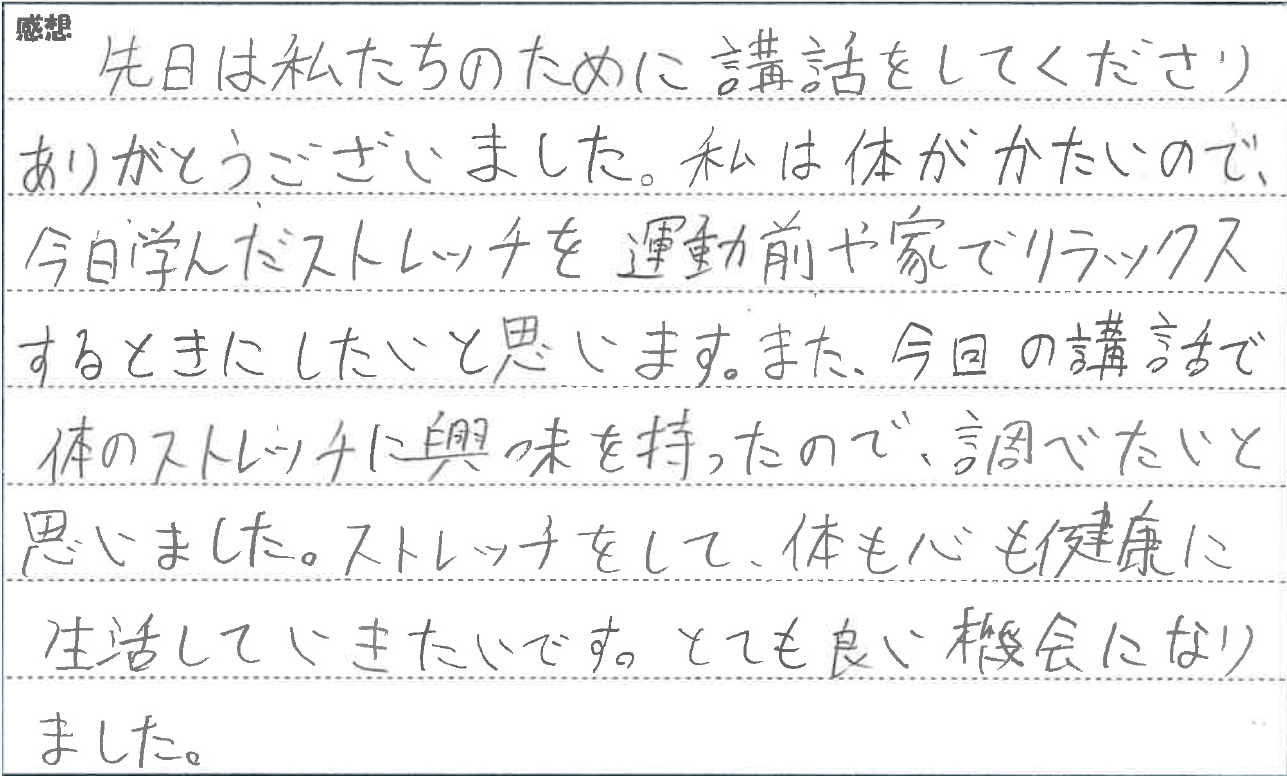 感想
先日は私たちのために講話をしてくださり
ありがとうございました。私は体がかたいので、
今日学んだストレッチを運動前や家でリラックス
するときにしたいと思います。また、今回の講話で
体のストレッチに興味を持ったので、調べたいと
思いました。ストレッチをして、体も心も健康に
生活していきたいです。とても良い機会になり
ました。